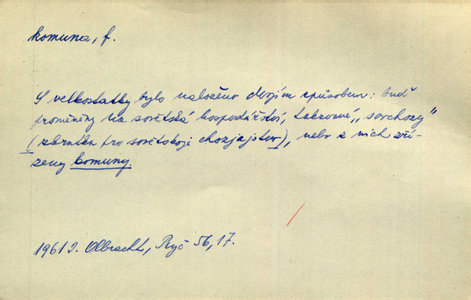 komuna, f.
S velkostatky bylo naloženo dvojím způsobem: buď
proměněny na sovětská hospodářství, takzvané „sovchozy"
(zkratka pro sovětskoje chozjajstvo), nebo z nich zří-
zeny komuny.
1961 I. Olbracht, Ryč 56, 17.